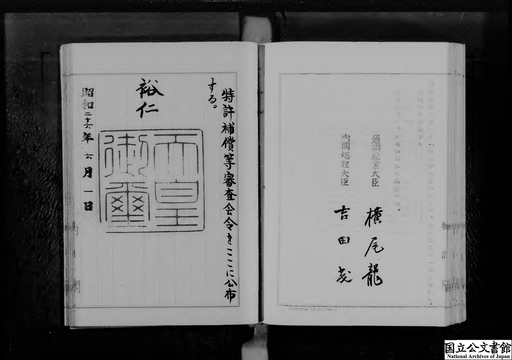 特許補償等審査会令をここに公布
する。
裕仁
天皇
御璽
昭和二十六年六月一日
通商産業大臣 横尾龍
内閣総理大臣 吉田茂
国立公文書館
National Archives of Japan